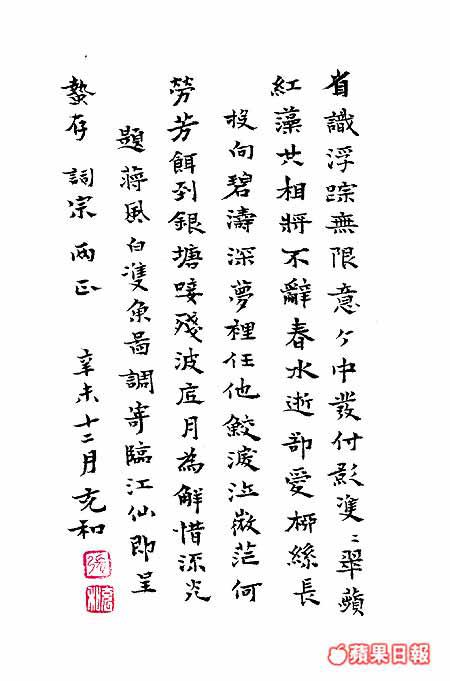 省識浮踪無限意个中發付影雙〻翠蘋
紅藻共相將不辭春水逝卻愛柳絲長
投向碧濤深夢裡任他鮫淚泣微茫何
勞芳餌到銀塘唼殘波底月為解惜流光
題蔣風白雙魚圖調寄臨江仙即呈
蟄存 詞宗 兩正 辛未十二月充和
張
充和
蘋果日報